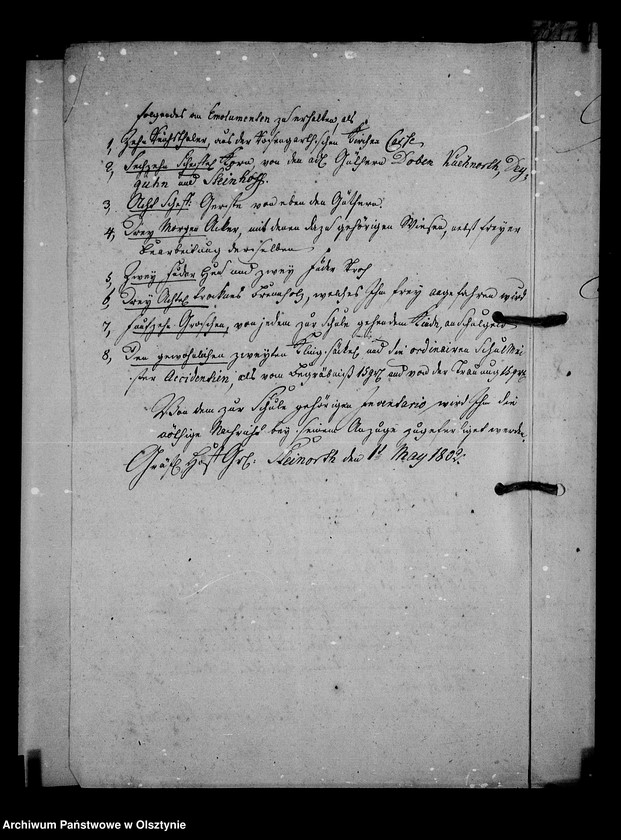 folgendes an Emolumenten zu erhalten, als
1, Zehn Reichsthaler, aus der Rosengarthschen Kirchen Casse
2, Sechzehn Scheffel Korn, von den adl. Güthern Doben
guhn und Steinhoff.
3, Acht Scheff: Gerste von eben den Güthern.
4, Drey Morgen Acker, mit denen dazu gehörigen Wiesen, nebst freyer
Bearbeitung derselben
5, Zwey Fuder Heu und zwey Fuder Stroh
6, Drey Achtel trocknes Brennholz, welches Ihm frey angefahren wird
7, Funfzehn Groschen, von jedem zur Schule gehenden Kinde, an Schulgeld
8, Den gewöhnlichen zweyten Klingsäckel, und die ordinairen Schulmei-
ster Accidentien, als vom Begräbniß 15 gr und von der Trauung 15 gr
Von dem zur Schule gehörigen Inventario wird Ihm die
nöthige Nachricht bey seinem Anzuge zugefertiget werden.
Steinorth den 1t May 1802.
Archiwum Państwowe w Olsztynie